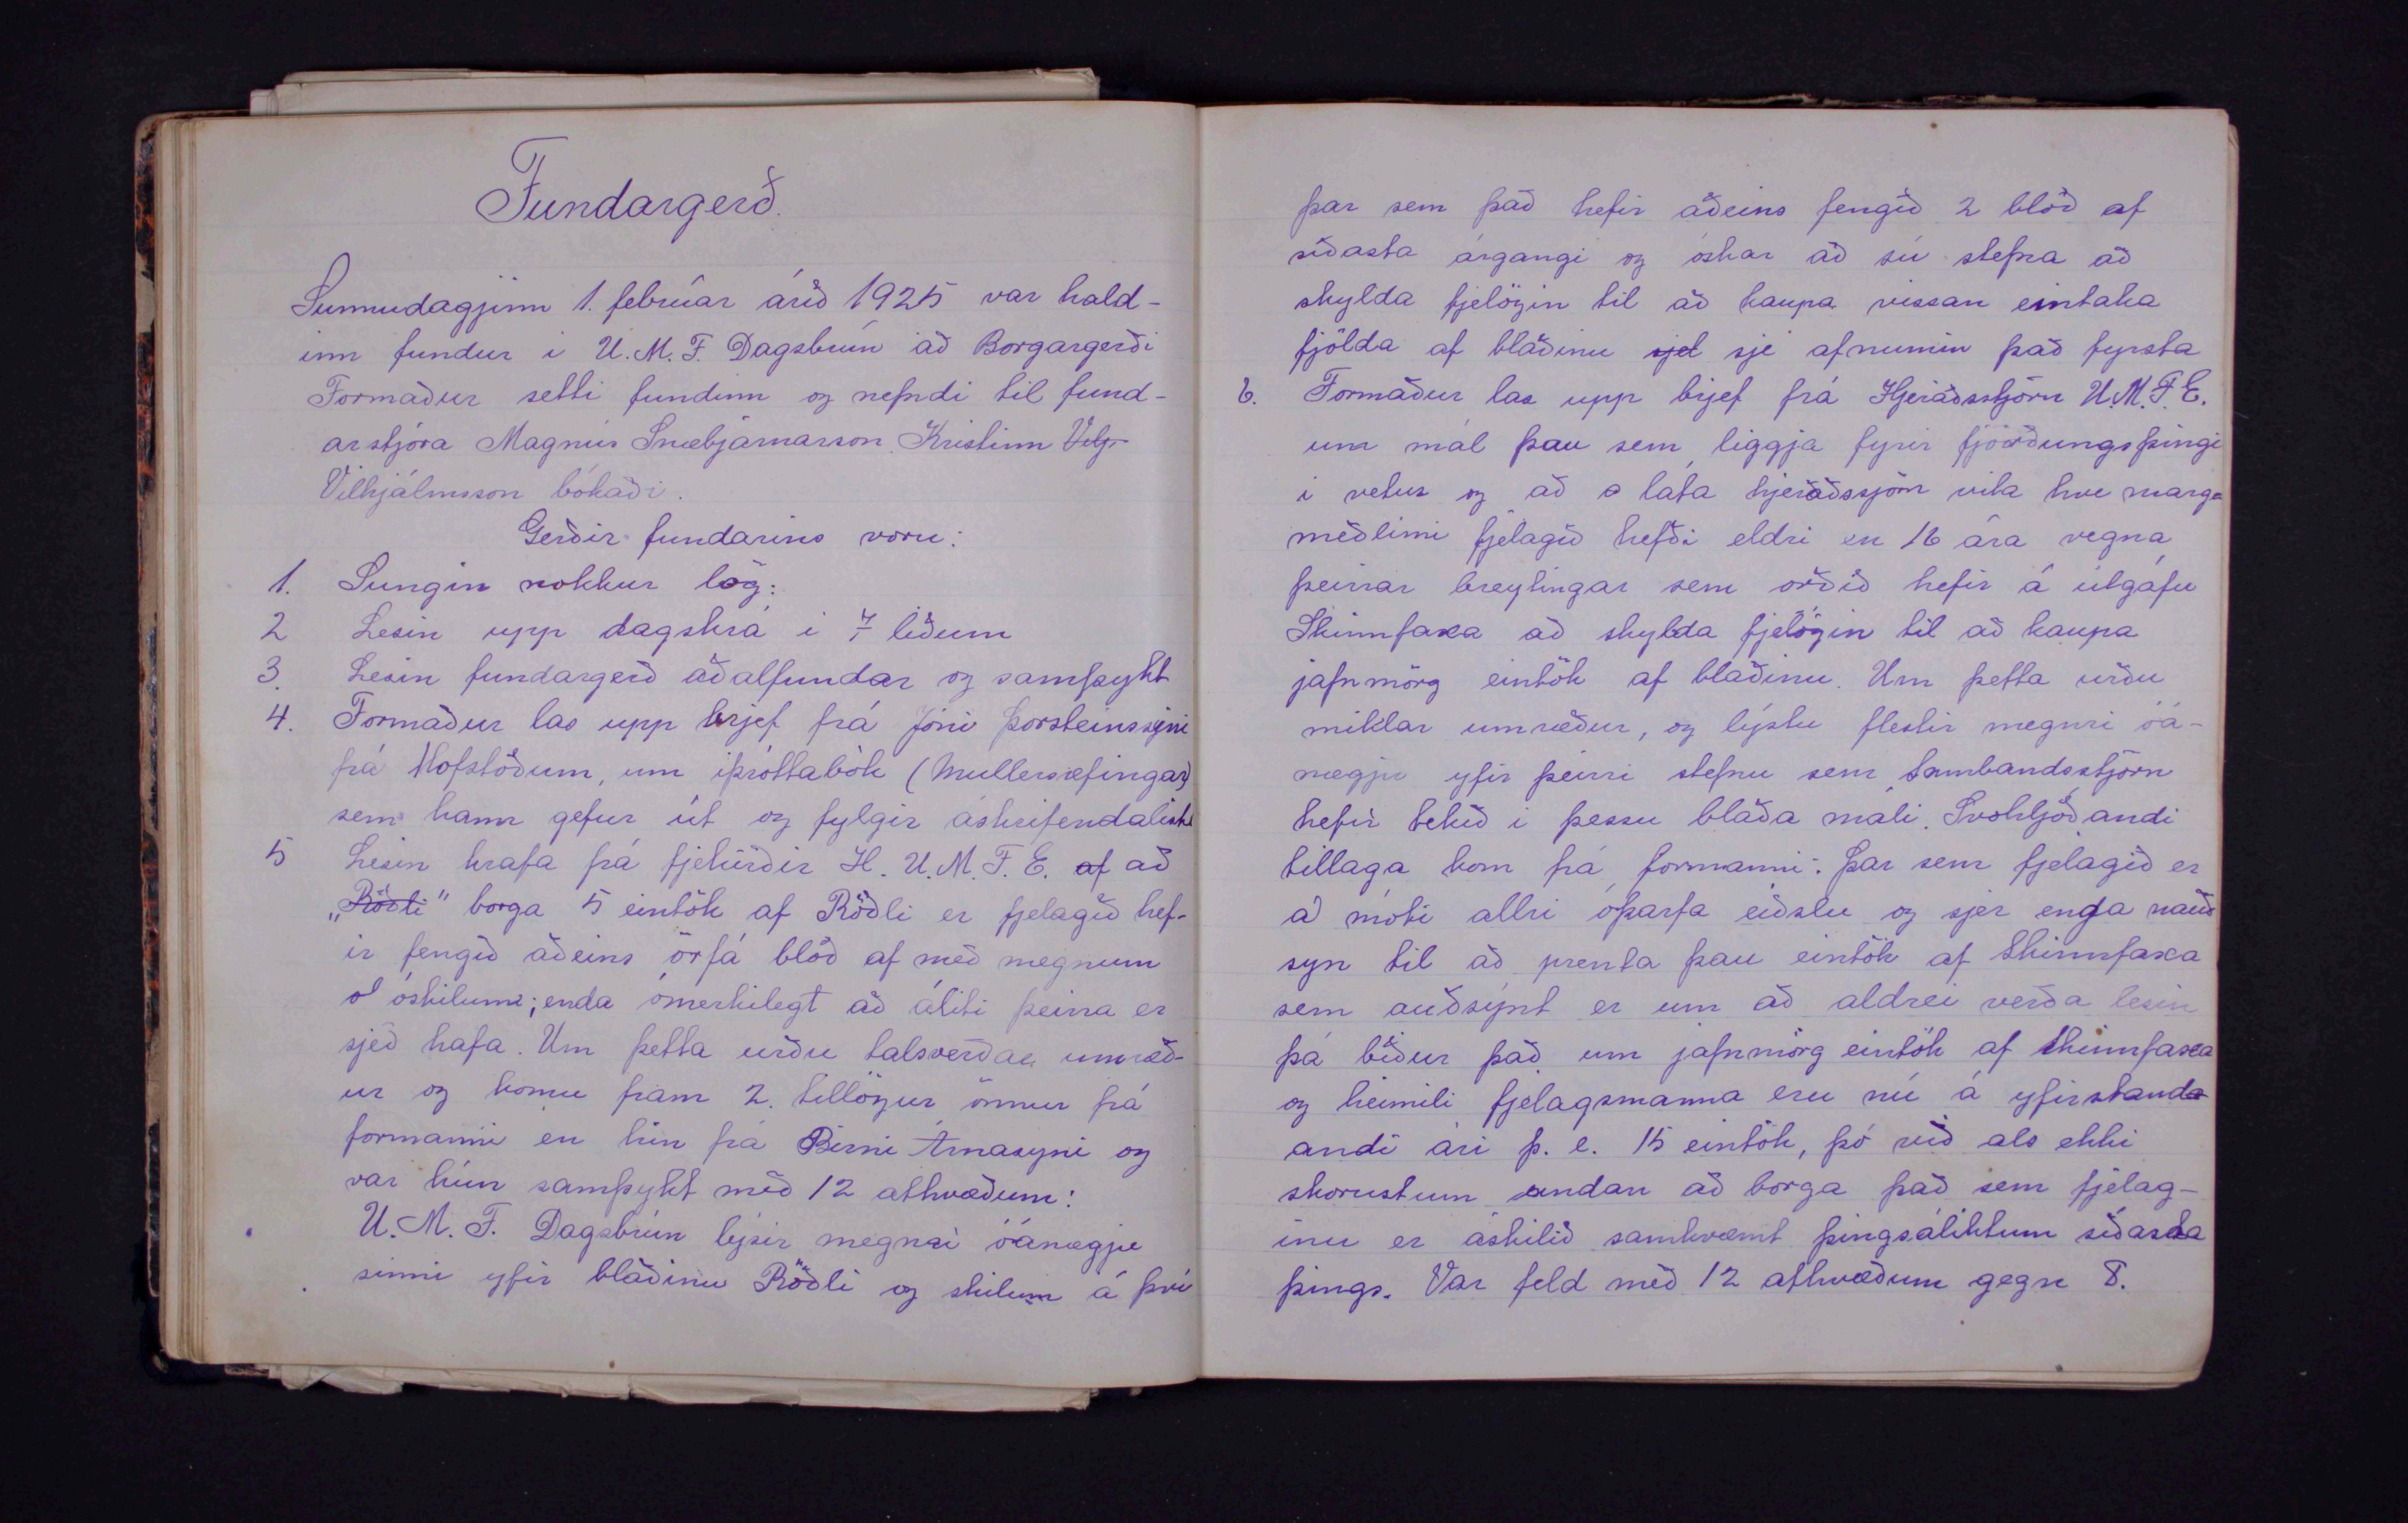 Fundargerð.
Sunnudagjinn 1. febrúar árið 1925 var hald-
inn fundur i U.M.F. Dagsbrún að Borgargerði
Formaður setti fundinn og nefndi til fund-
arstjóra Magnús Snæbjárnarson. Kristinn Vilj-
Vilhjálmsson bókaði.
Gerðir fundarins voru:
1. Sungin nokkur lög:
2 Lesin upp dagskrá i 7 liðum
3. Lesin fundargerð aðalfundar og samþykt
4. Formaður las upp brjef frá Jóni Þorsteinssyni
frá Hofstöðum, um íþróttabók (Mullersæfingar)
sem hann gefur út og fylgir áskrifendalisti
5 Lesin krafa frá fjehirðir H. U.M.F.E. af að
„Röðli" borga 5 eintök af Röðli er fjelagið hef-
ir fengið aðeins örfá blöð af með megnum
o óskilum; enda ómerkilegt að áliti þeirra er
sjeð hafa. Um þetta urðu talsverðae umræð-
ur og komu fram 2. tillögur önnur frá
formanni en hin frá Birni Árnasyni og
var hún samþykt með 12 atkvæðum:
U.M.F. Dagsbrún lýsir megnri óánægju
sinni yfir blaðinu Röðli og skilum á því
þar sem það hefir aðeins fengið 2 blöð af
síðasta árgangi og óskar að sú stefna að
skylda fjelögin til að kaupa vissan eintaka
fjölda af blaðinu sjel sje afnumin það fyrsta
6. Formaður las upp brjef frá Hjeraðsstjórn U.M.F.E.
um mál þau sem liggja fyrir fjórðungsþingi
i vetur og að o láta hjeraðssjórn vita hve marga
meðlimi fjelagið hefði eldri en 16 ára vegna
þeirrar breytingar sem orðið hefir á útgáfu
Skinnfaxa að skylda fjelögin til að kaupa
jafnmörg eintök af blaðinu. Um þetta urðu
miklar umræður, og lýstu flestir megnri óá-
nægju yfir þeirri stefnu sem Sambandsstjórn
hefir tekið i þessu blaða máli. Svohljóðandi
tillaga kom frá formanni: Þar sem fjelagið er
á móti allri óþarfa eiðslu og sjer enga nauð
syn til að prenta þau eintök af Skinnfaxa
sem auðsýnt er um að aldrei verða lesin
þá biður það um jafnmörg eintök af Skinnfaxa
og heimili fjelagsmanna eru nú á yfirstanda
andi ári þ. e. 15 eintök, þó við als ekki
skorustum undan að borga það sem fjelag-
inu er áskilið samkvæmt þingsáliktum síðasta
þings. Var feld með 12 atkvæðum gegn 8.